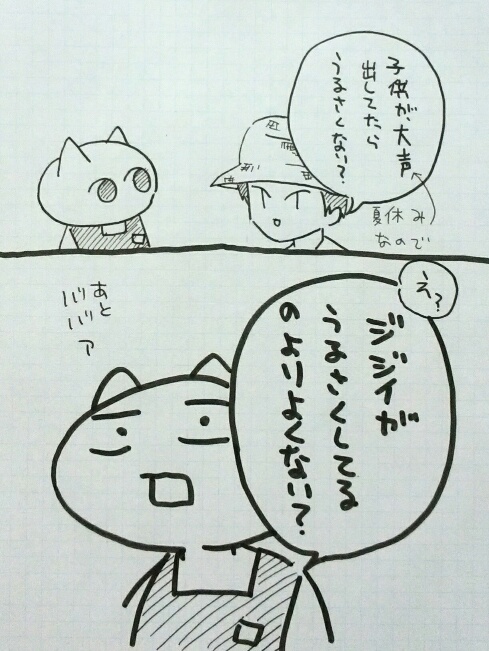 子供が、大声
出してたら
うるさくない?
夏休み
なので
え?
ジジイが
うるさくしてる
のよりよくない?
あと
ババア